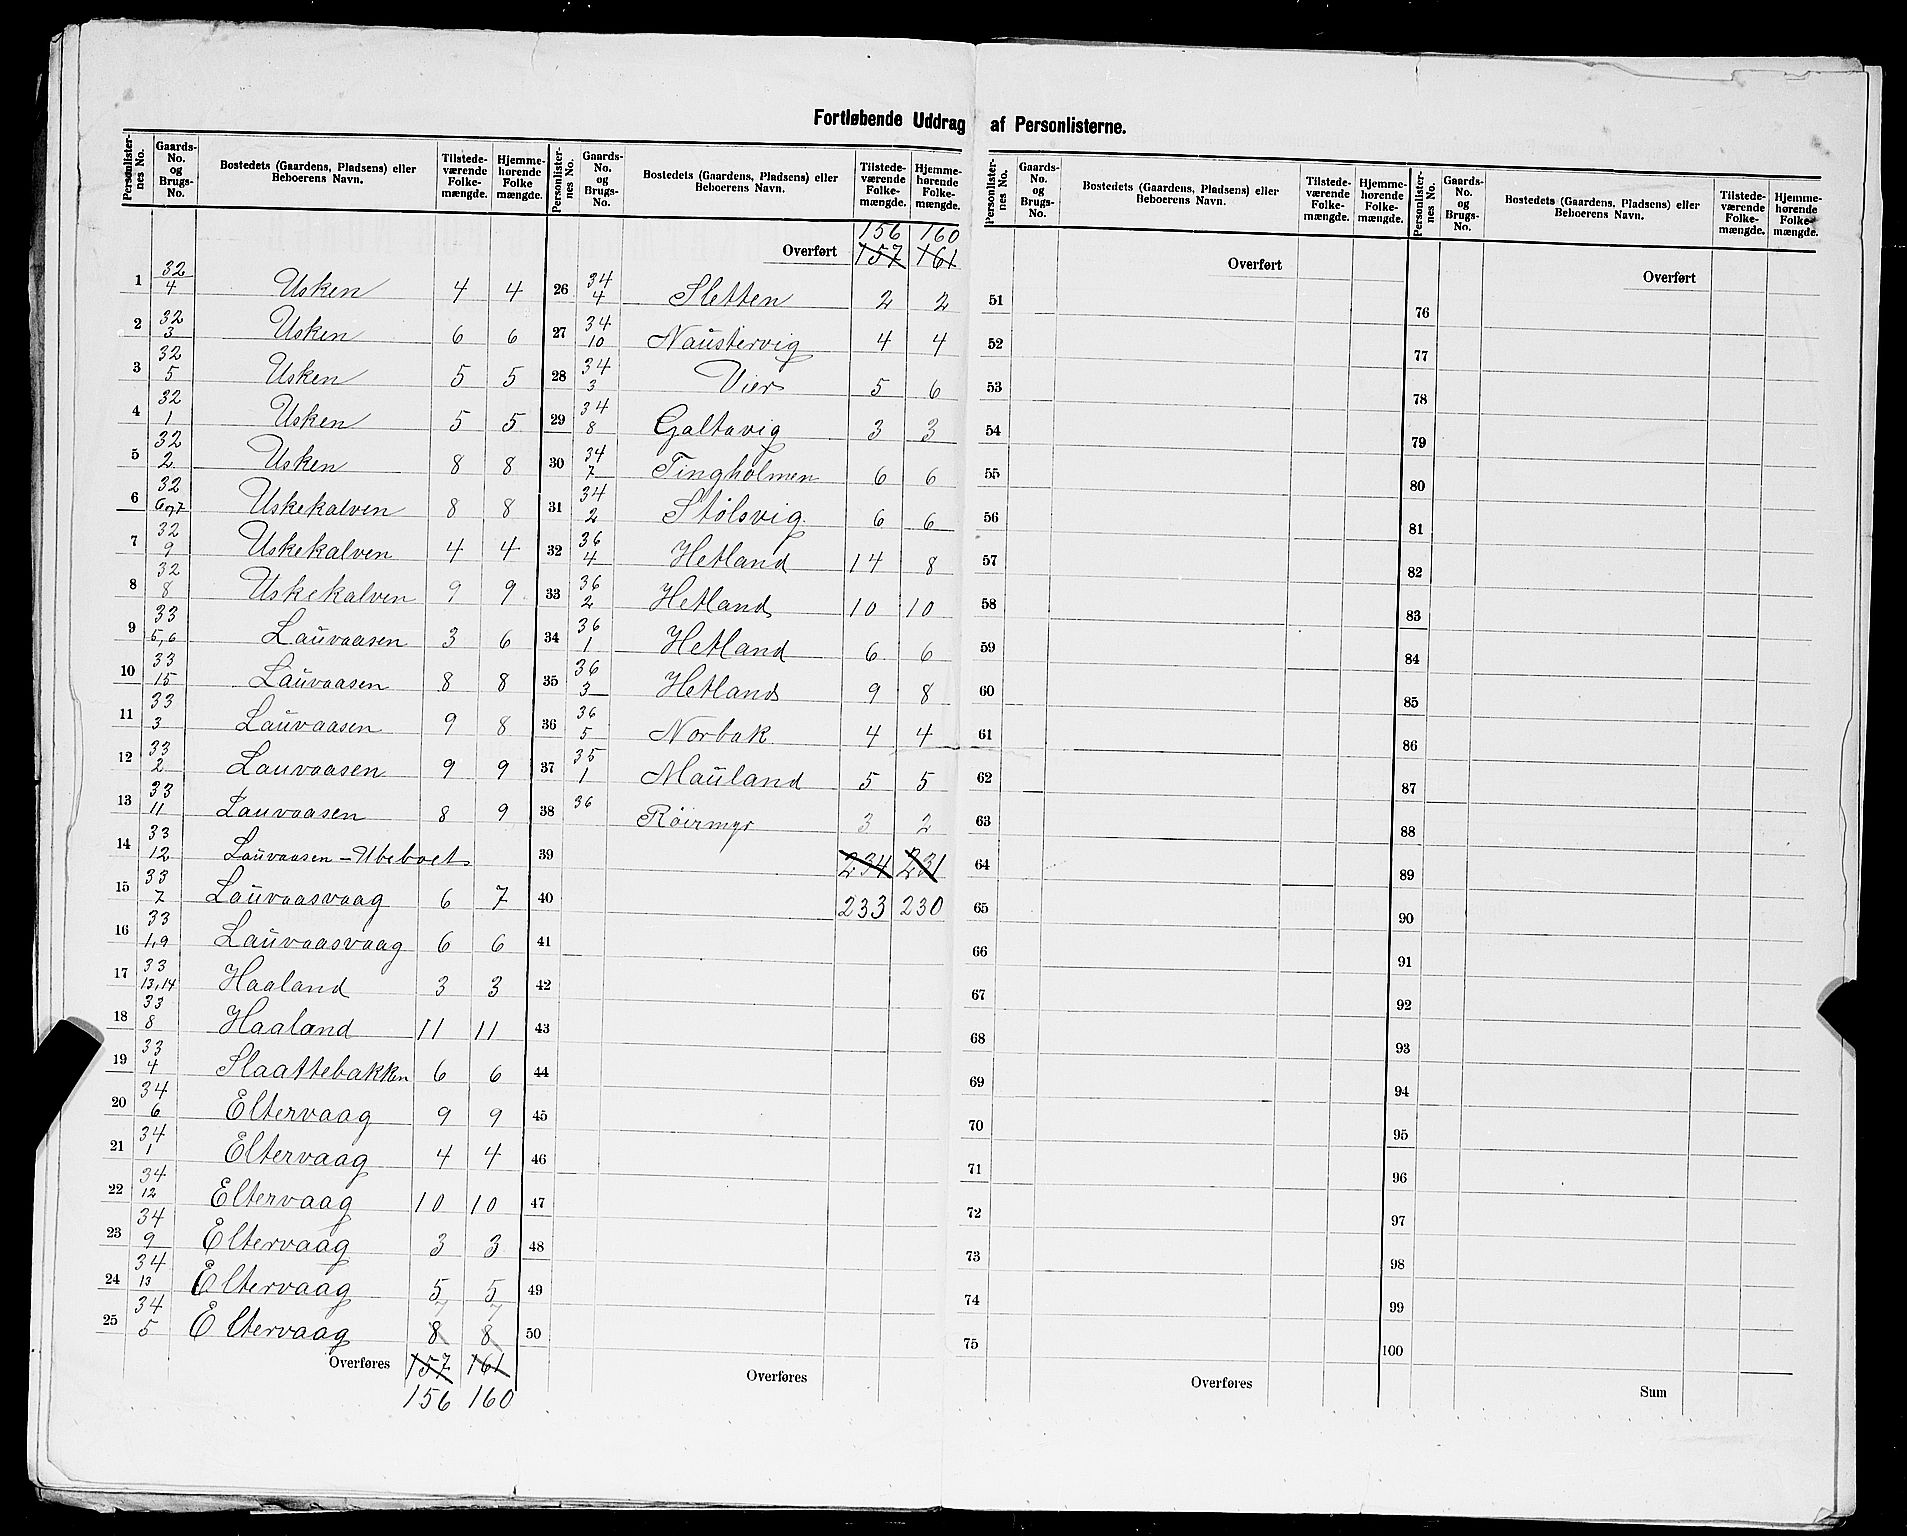 Fortløbende Uddrag af Personlisterne.
Personlister-nes No. | Gaards-No. og Brugs-No. | Bostedets (Gaardens, Pladsens) eller Beboerens Navn. | Tilstede-værende Folke-mængde. | Hjemme-hørende Folke mængde.
1 32/4 Usken 4 4
2 32/3 Usken 6 6
3 32/5 Usken 5 5
4 32/1 Usken 5 5
5 32/2 Usken 8 8
6 32/6og7 Uskekalven 8 8
7 32/9 Uskekalven 4 4
8 32/8 Uskekalven 9 9
9 33/5,6 Lauvaasen 3 6
10 33/15 Lauvaasen 8 8
11 33/3 Lauvaasen 9 8
12 33/2 Lauvaasen 9 9
13 33/11 Lauvaasen 8 9
14 33/12 Lauvaasen – Ubeboet
15 33/7 Lauvaasvaag 6 7
16 33/1,9 Lauvaasvaag 6 6
17 33/13,14 Haaland 3 3
18 33/8 Haaland 11 11
19 33/4 Slaattebakken 6 6
20 34/6 Eltervaag 9 9
21 34/1 Eltervaag 4 4
22 34/12 Eltervaag 10 10
23 34/9 Eltervaag 3 3
24 34/13 Eltervaag 5 5
7 7
25 34/5 Eltervaag 8 8
Overføres 157 161
156 160
Personlister-nes No. | Gaards-No. og Brugs-No. | Bostedets (Gaardens, Pladsens) eller Beboerens Navn. | Tilstede-værende Folke-mængde. | Hjemme-hørende Folke-mængde.
156 160
Overført 157 161
26 34/4 Sletten 2 2
27 34/10 Naustervig 4 4
28 34/3 Vier 5 6
29 34/8 Galtavig 3 3
30 34/7 Tingholmen 6 6
31 34/2 Stølsvig 6 6
32 36/4 Hetland 14 8
33 36/2 Hetland 10 10
34 36/1 Hetland 6 6
35 36/3 Hetland 9 8
36 36/5 Norbak 4 4
37 35/1 Mauland 5 5
38 36 Røirmyr 3 2
39 234 231
40 233 230
41
42
43
44
45
46
47
48
49
50
Overføres
Personlister-nes No. | Gaards-No. og Brugs-No. | Bostedets (Gaardens, Pladsens) eller Beboerens Navn. | Tilstede-værende Folke-mængde. | Hjemme-hørende Folke-mængde.
Overført
51
52
53
54
55
56
57
58
59
60
61
62
63
64
65
66
67
68
69
70
71
72
73
74
75
Overføres
Personlister-nes No. | Gaards-No. og Brugs-No. | Bostedets (Gaardens, Pladsens) eller Beboerens Navn. | Tilstede-værende Folke-mængde. | Hjemme-hørende Folke-mængde.
Overført
76
77
78
79
80
81
82
83
84
85
86
87
88
89
90
91
92
93
94
95
96
97
98
99
100
Sum